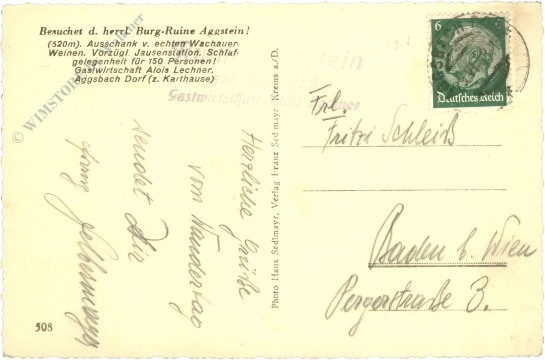 Besuchet d. herrl. Burg-Ruine Aggstein!
(520m). Ausschank v. echten Wachauer
Weinen. Vorzügl. Jausenstation. Schlaf-
gelegenheit für 150 Personen!
Gastwirtschaft Alois Lechner,
Aggsbach Dorf (z. Karthause)
Gastwirtschaft Alois Lechner
6
Deutsches Reich
Herzliche Grüße
vom Wandertag
sendet Dir
508
Photo Hans Sedlmayr, Verlag Franz Sedlmayr Krems a./D.
Frl.
Fritzi Schleiß
Baden b. Wien
Pergerstraße 3.